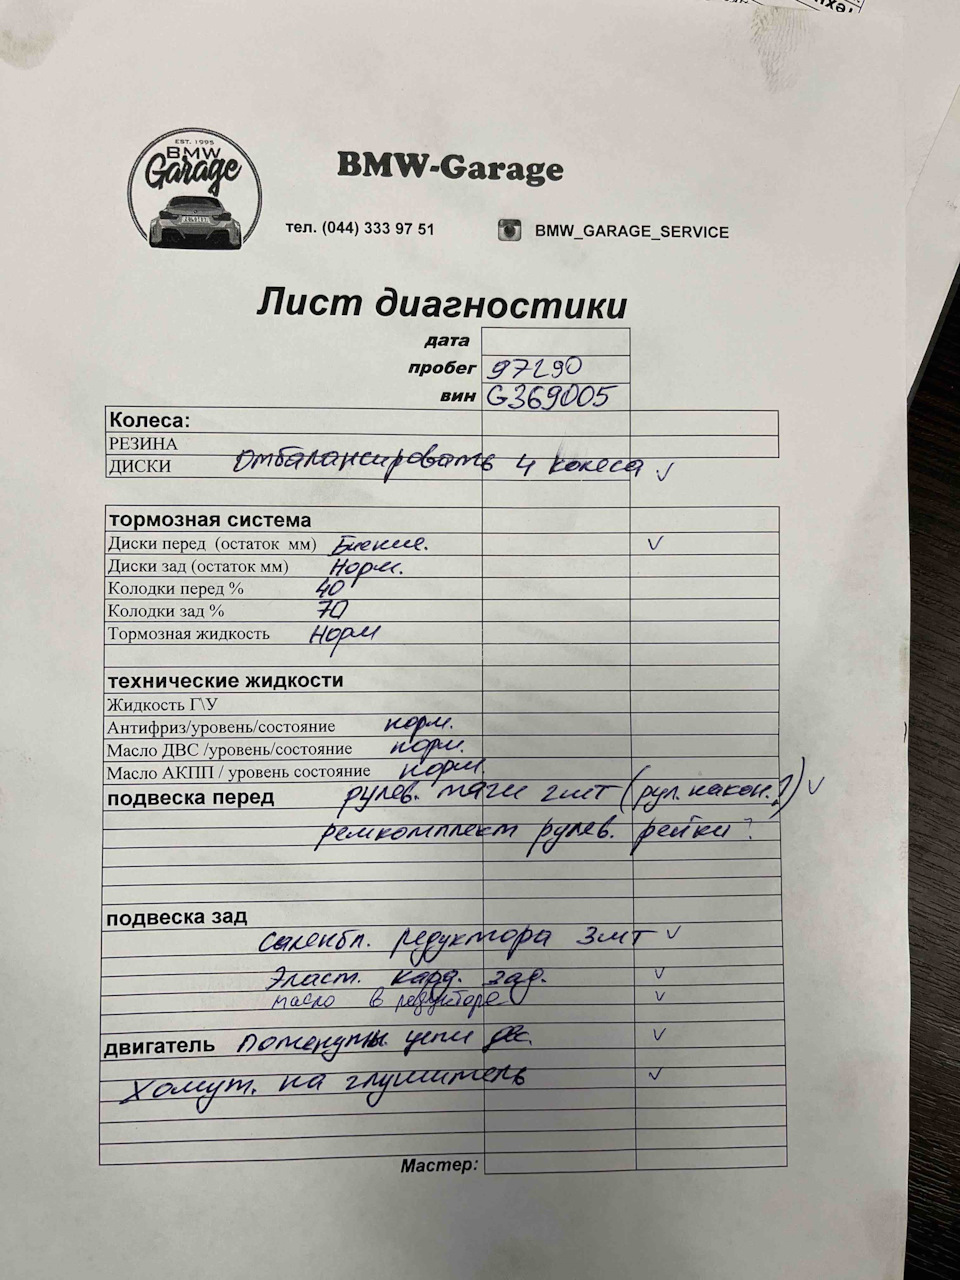 EST. 1995
BMW
Garage
BMW-Garage
тел. (044) 333 97 51
BMW_GARAGE_SERVICE
Лист диагностики
дата
пробег 97290
вин G369005
Колеса:
РЕЗИНА
ДИСКИ отбалансировать 4 колеса ✓
тормозная система
Диски перед (остаток мм) Биение. ✓
Диски зад (остаток мм) Норм.
Колодки перед % 40
Колодки зад % 70
Тормозная жидкость Норм
технические жидкости
Жидкость Г\У
Антифриз/уровень/состояние норм.
Масло ДВС /уровень/состояние норм.
Масло АКПП / уровень состояние норм.
подвеска перед рулев. тяги 2шт (рул. након.?) ✓
ремкомплект рулев. рейки ?
подвеска зад
саленбл. редуктора 3шт ✓
Эласт. кард. зад. ✓
масло в редукторе ✓
двигатель потенуты цепи двс. ✓
Хомут. на глушитель ✓
Мастер: